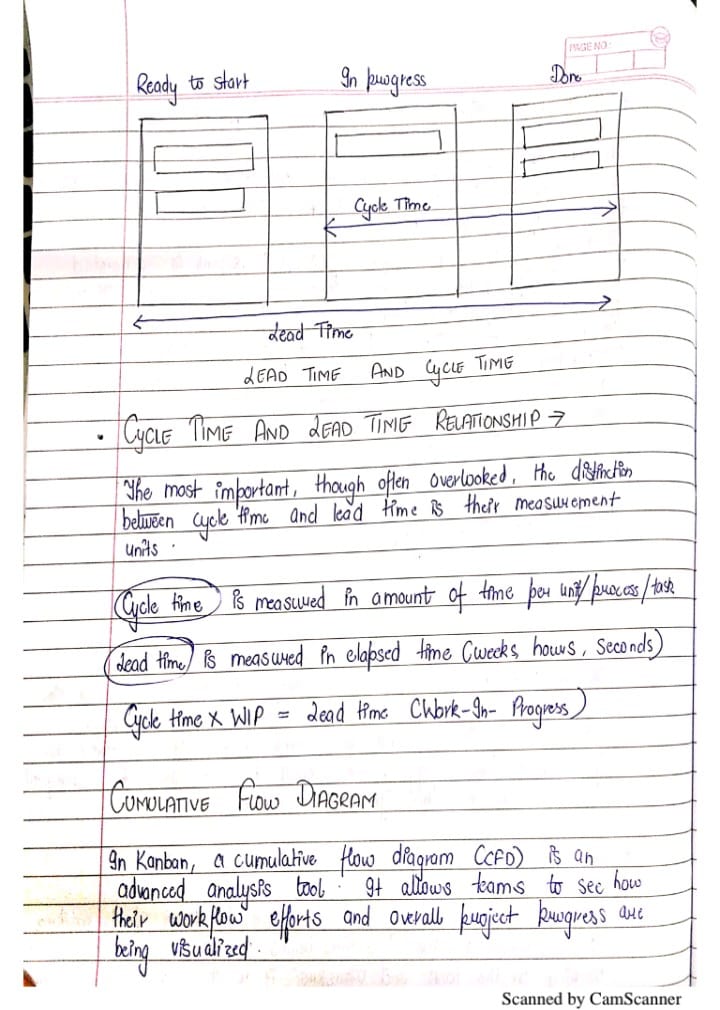 PAGE NO:
Ready to start In progress Done
Cycle Time
Lead Time
LEAD TIME AND CYCLE TIME
• CYCLE TIME AND LEAD TIME RELATIONSHIP →
The most important, though often overlooked, the distinction
between cycle time and lead time is their measurement
units.
Cycle time is measured in amount of time per unit/process/task
Lead time is measured in elapsed time (weeks, hours, seconds)
Cycle time x WIP = Lead time (Work-In-Progress)
CUMULATIVE FLOW DIAGRAM
In Kanban, a cumulative flow diagram (CFD) is an
advanced analysis tool. It allows teams to see how
their workflow efforts and overall project progress are
being visualized.
Scanned by CamScanner